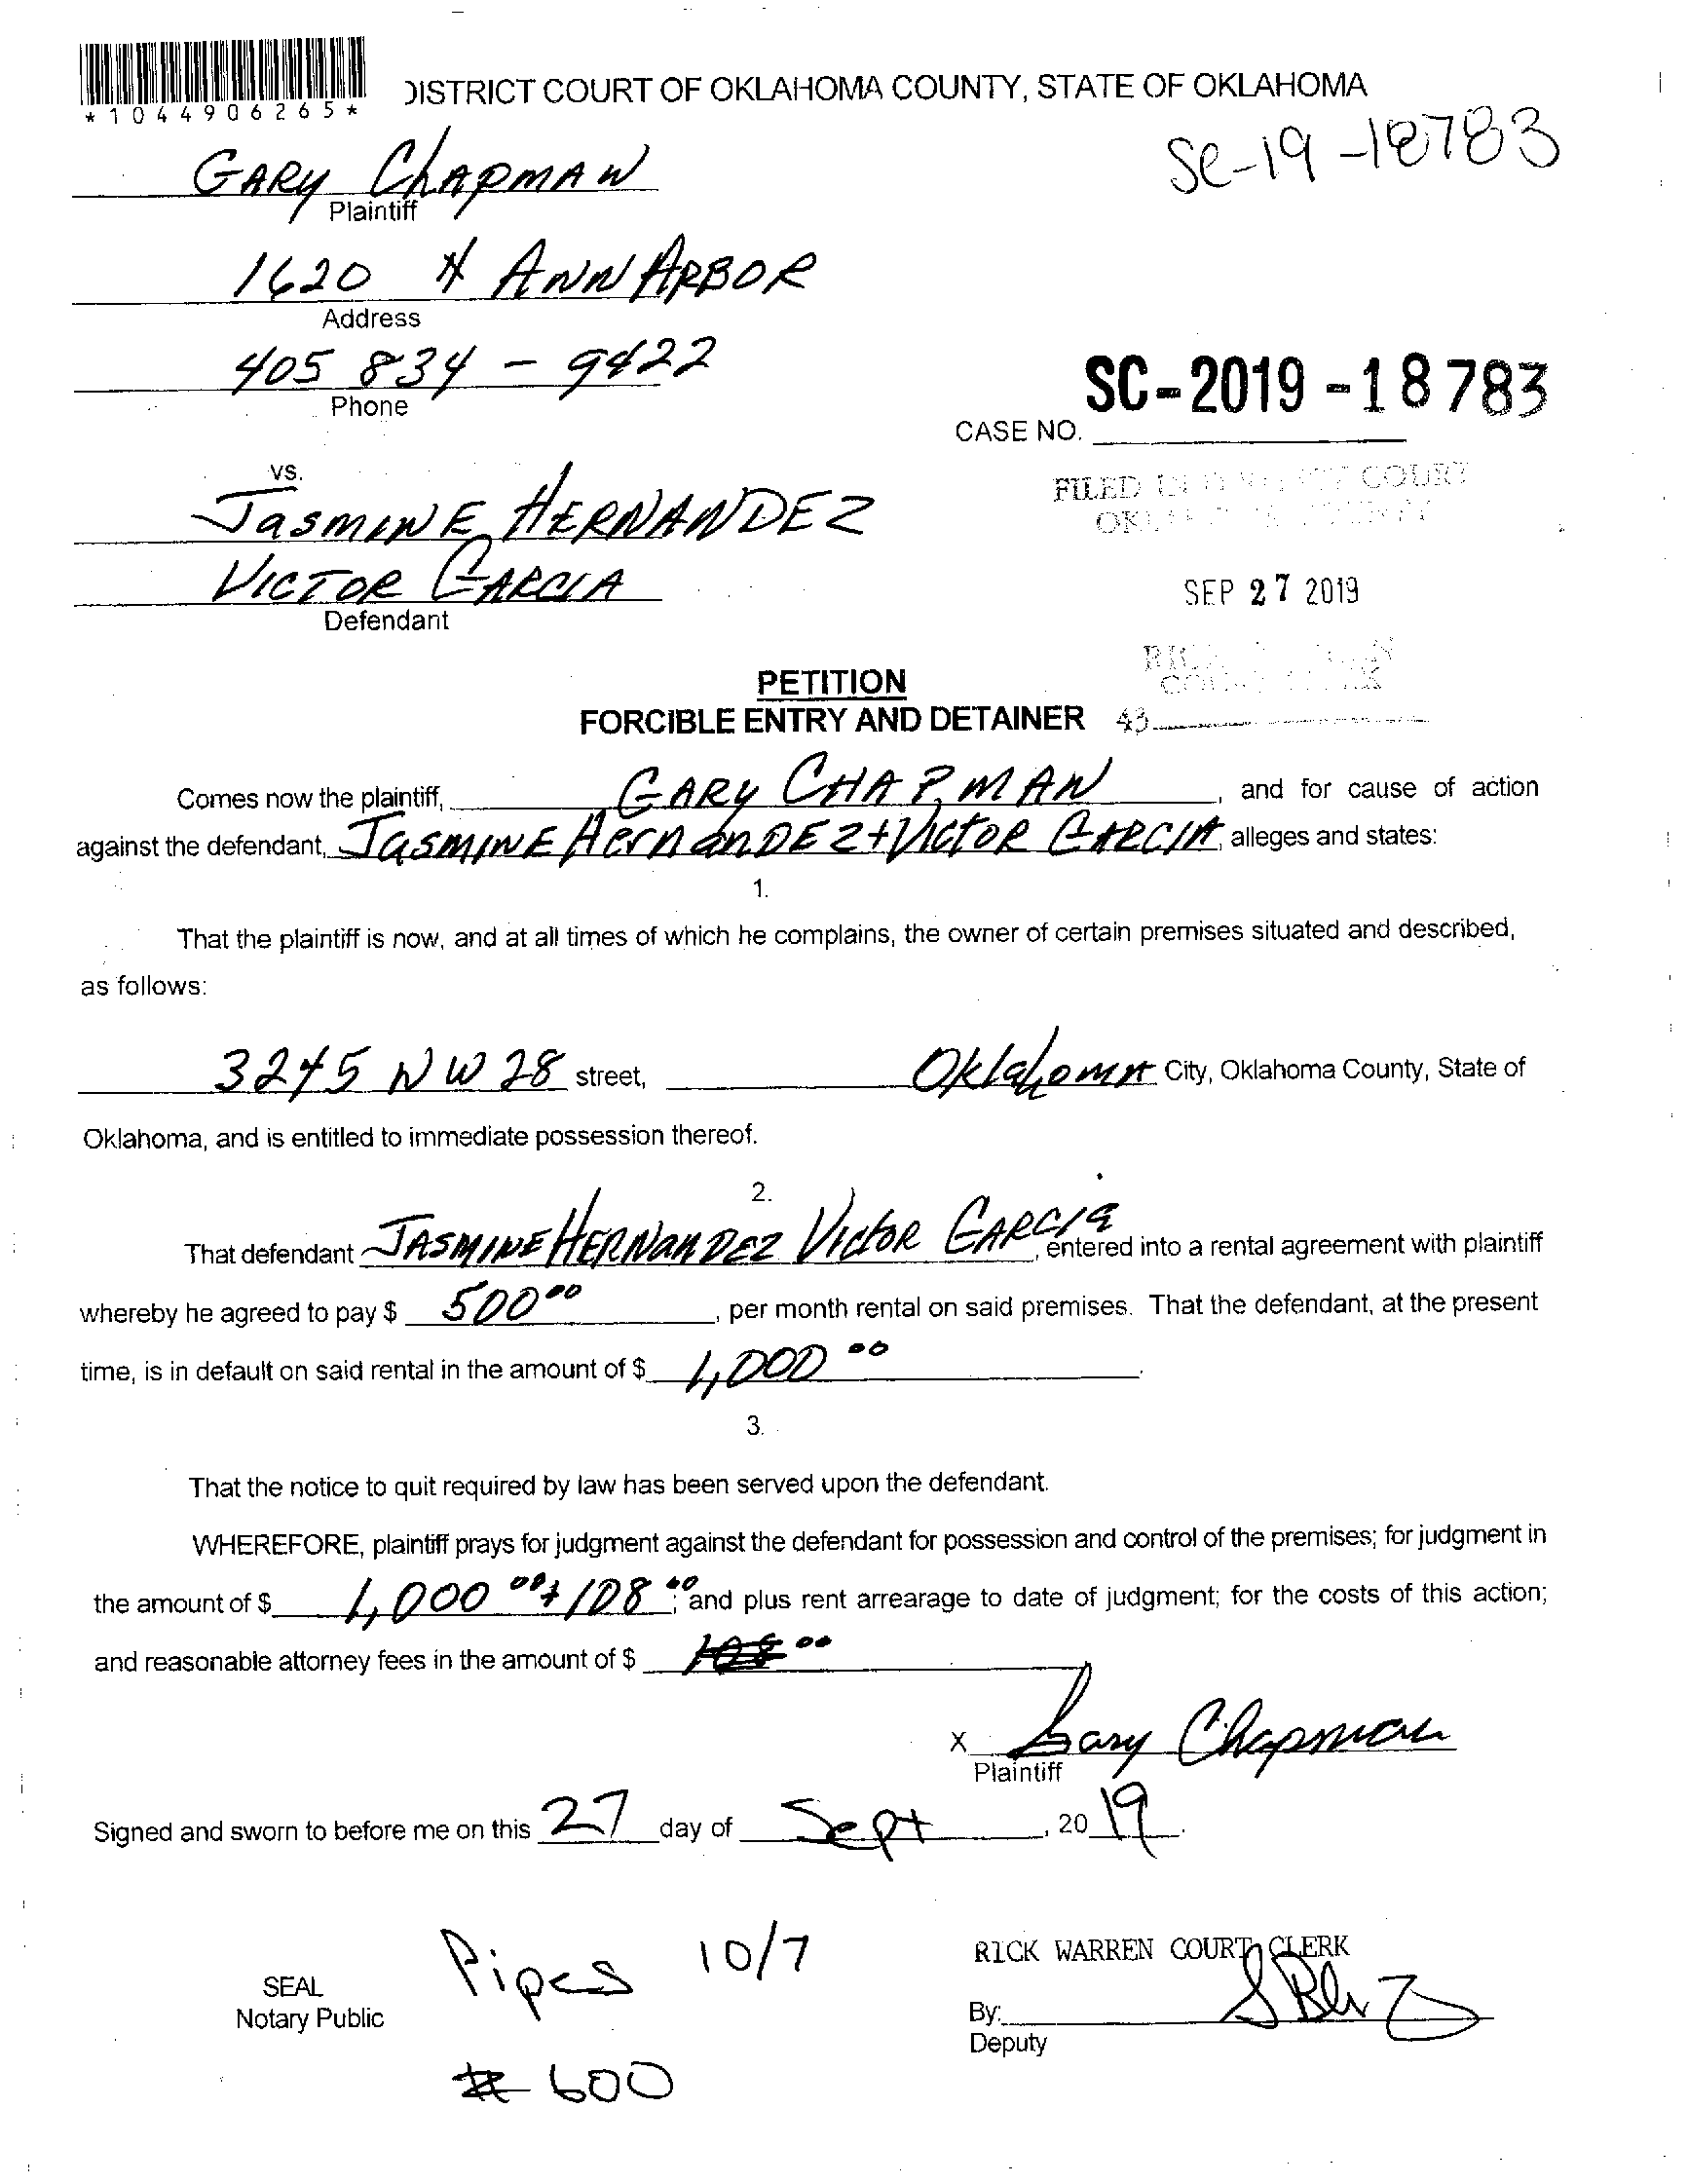 *1044906265*
DISTRICT COURT OF OKLAHOMA COUNTY, STATE OF OKLAHOMA
SC-19-18783
GARY CHAPMAN
Plaintiff
1620 N ANN ARBOR
Address
405 834 - 9422
Phone
SC-2019-18783
CASE NO.
vs.
JASMINE HERNANDEZ
FILED IN COURT
VICTOR GARCIA
Defendant
SEP 27 2019
PETITION
FORCIBLE ENTRY AND DETAINER 43
Comes now the plaintiff, GARY CHAPMAN, and for cause of action
against the defendant, JASMINE HERNANDEZ + VICTOR GARCIA, alleges and states:
1.
That the plaintiff is now, and at all times of which he complains, the owner of certain premises situated and described,
as follows:
3245 NW 28 street, Oklahoma City, Oklahoma County, State of
Oklahoma, and is entitled to immediate possession thereof.
2.
That defendant JASMINE HERNANDEZ VICTOR GARCIA, entered into a rental agreement with plaintiff
whereby he agreed to pay $ 500.00, per month rental on said premises. That the defendant, at the present
time, is in default on said rental in the amount of $ 1,000 00.
3.
That the notice to quit required by law has been served upon the defendant.
WHEREFORE, plaintiff prays for judgment against the defendant for possession and control of the premises; for judgment in
the amount of $ 1,000 00 + 108 00; and plus rent arrearage to date of judgment; for the costs of this action;
and reasonable attorney fees in the amount of $ 108 00
x Gary Chapman
Plaintiff
Signed and sworn to before me on this 27 day of Sept, 2019.
Pipes 10/7
RICK WARREN COURT CLERK
SEAL
Notary Public
By:
Deputy
# 600